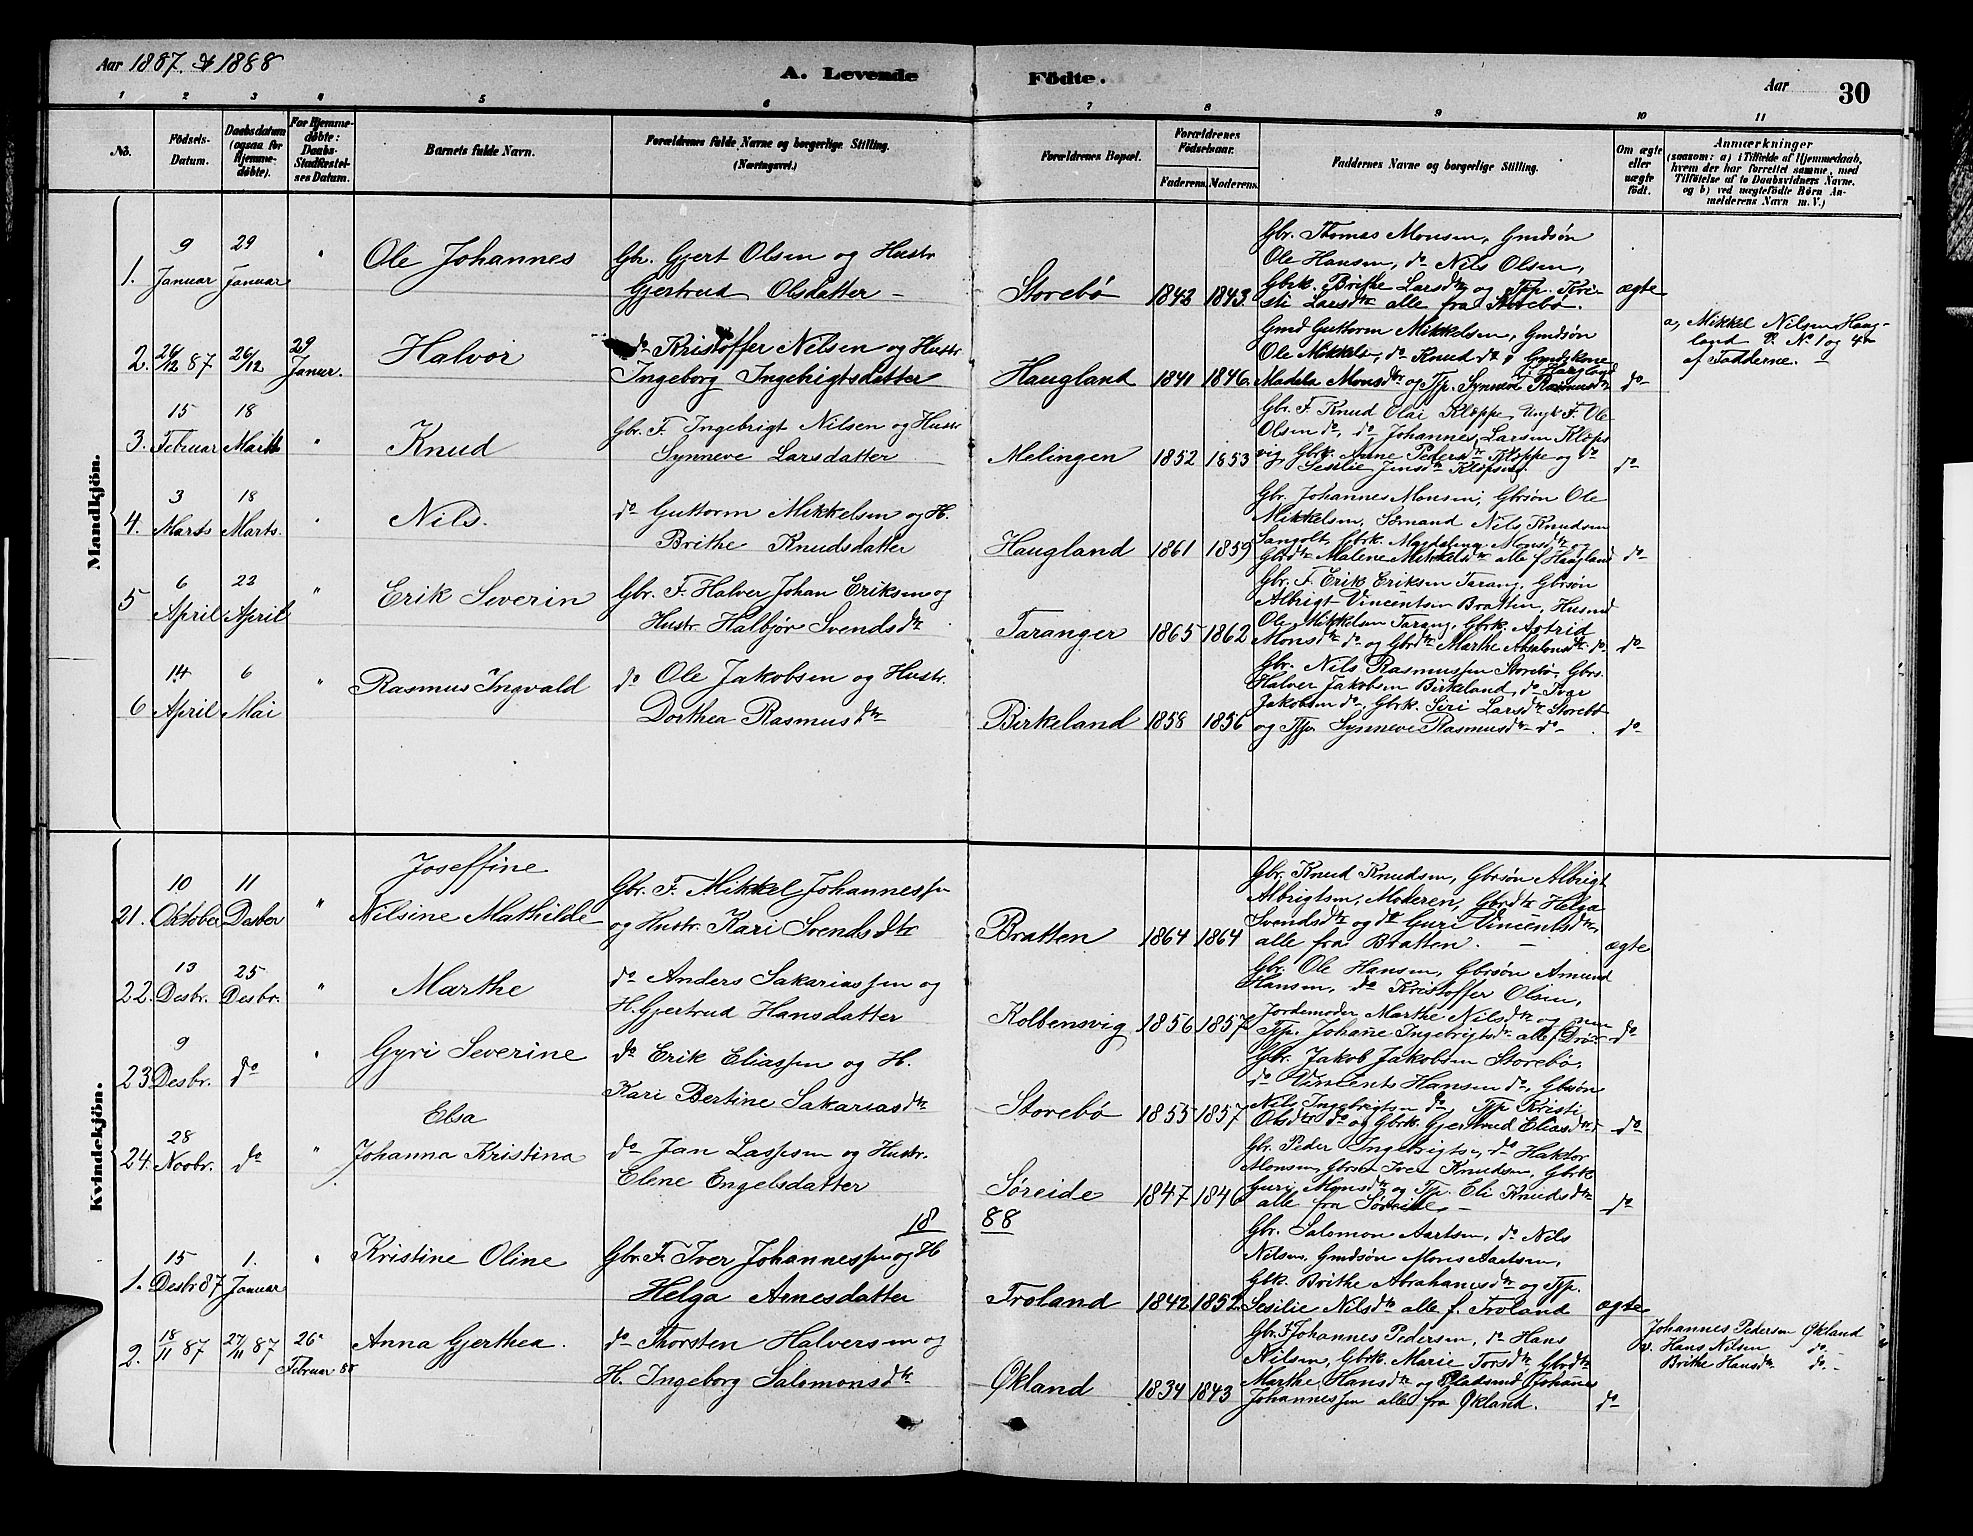 Aar 1887 & 1888
A. Levende Födte.
Aar 30
1 2 3 4 5 6 7 8 9 10 11
No. Födsels-Datum. Daabsdatum (ogsaa for Hjemmedöbte). For Hjemmedöbte: Daabs-Stadfæstelses Datum. Barnets fulde Navn. Forældrenes fulde Navne og borgerlige Stilling. (Næringsvei.) Forældrenes Bopæl. Forældrenes Födselsaar. Faderens. Moderens. Faddernes Navne og borgerlige Stilling. Om ægte eller uægte födt. Anmærkninger (saasom: a) i Tilfælde af Hjemmedaab, hvem der har forrettet samme, med Tilföielse af to Daabsvidners Navne, og b) ved uægtefödte Børn Anmelderens Navn m. V.)
Mandkjön.
1. 9 Januar 29 Januar " Ole Johannes
Gbr. Gjert Olsen og Hustr
Gjertrud Olsdatter –
Storebø 1843 1843.
Gbr. Thomas Monsen, Gmdsøn
Ole Hansen, do Nils Olsen,
Gbrk. Brithe Larsdtr og Tjp. Kri-
sti Larsdtr alle fra Storebø.
ægte
2. 24/12 87 26/12 29 Januar. Halvor
do Kristoffer Nilsen og Hustr
Ingeborg Ingebrigtsdatter
Haugland 1841 1846.
Gmd Guttorm Mikkelsen, Gmdsøn
Ole Mikkels, do Knud do, Gmdskone
Madela Monsdtr og Tjp. Synneve Rasmusdtr
f. Haugland
do
a, Mikkel Nilsen Haug-
land 2. No 1 og 4
af Fadderne. –
3. 15 Februar 18 Marts " Knud
Gbr. F. Ingebrigt Nilsen og Hustr
Synneve Larsdatter
Melingen 1852 1853
Gbr. F. Knud Olai Kloppe, Ungk F. Ole
Olsen do, do Johannes Larsen Klops
vig, Gbrk. Anne Pedersdtr Kloppe og do
Sesilie Jensdtr Klopsvig.
do
4. 3 Marts 18 Marts. " Nils.
do Guttorm Mikkelsen og H.
Brithe Knudsdatter
Haugland 1861 1859
Gbr. Johannes Monsen, Gbrsøn Ole
Mikkelsen, Sømand Nils Knudsen
Sangolt, Gbrk. Magdalena Monsdtr og
Gbrdtr Malene Mikkelsdtr alle f Haugland
do
5 6 April 22 April " Erik Severin
Gbr. F. Halver Johan Eriksen og
Hustr. Halbjør Svendsdtr
Taranger 1865 1862
Gbr. F. Erik Eriksen Tarang, Gbrsøn
Albrigt Vincentsen Bratten, Husmd
Ole Mikkelsen Tarang, Gbrk. Astrid
Monsdtr do og Gbrdtr Marthe Absalonsdtr do
do
6 14 April 6 Mai " Rasmus Ingvald
do Ole Jakobsen og Hustr.
Dorthea Rasmusdtr
Birkeland 1858 1856
Gbr. Nils Rasmussen Storebø, Gbrs.
Halver Jakobsen Birkeland, do Ivar
Jakobsen do, Gbrk. Siri Larsdtr Storebø
og Tjp. Synneve Rasmusdtr do
do
Kvindekjön.
21. 10 Oktober 11 Desber " Joseffine
Nilsine Mathilde
Gbr. F. Mikkel Johannessen
og Hustr. Kari Svendsdtr
Bratten 1864 1864
Gbr. Knud Knudsen, Gbrsøn Albrigt
Albrigtsen, Moderen, Gbrdtr Helga
Svendsdtr og do Guri Vincentsdtr,
alle fra Bratten. –
ægte
22. 13 Desbr. 25 Desbr. " Marthe
do Anders Sakariassen og
H. Gjertrud Hansdatter
Kolbensvig 1856 1857
Gbr. Ole Hansen, Gbrsøn Amund
Hansen, do Kristoffer Olsen,
Jordemoder Marthe Nilsdtr og
Tjp. Johane Ingebrigtsdtr alle f
do
23. 9 Desbr. do " Gyri Severine
do Erik Eliassen og H.
Kari Bertine Sakariasdtr
Storebø 1855 1857
Gbr. Jakob Jakobsen Storebø,
do Vincents Hansen do, Gbrsøn
Nils Ingebrigtsen do, Tjp Kristi
Olsdtr do og Gbrk. Gjertrud Eliasdtr
do
24. 28 Novbr. do " Elsa
Johanna Kristina
do Jan Lassesen og Hustr.
Elene Engelsdatter
Søreide 1847 1846
Gbr. Peder Ingebrigts, do Haktor
Monsen, Gbrsøn Iver Knudsen, Gbrk
Guri Monsdtr og Tjp. Eli Knudsdtr
alle fra Søreide –
do
18 88
1. 15 Desbr 87 1. Januar " Kristine Oline
Gbr. F. Iver Johannessen og H
Helga Arnesdatter
Troland 1842 1852
Gbr. Salomon Aartsen, do Nils
Nilsen, Gmdsøn Mons Aartsen,
Gbk. Brithe Abrahamsdtr og Tjp.
Sesilie Nilsdtr alle f. Troland
ægte
2. 18/11 87 27/11 87 26 Februar 88 Anna Gjerthea.
do Thorsten Halversen og
H. Ingeborg Salomonsdtr
Økland 1834 1843
Gbr. F Johannes Pedersen, do Hans
Nilsen, Gbrk. Marie Torsdtr Gbrdtr
Marthe Hansdtr og Pladsmd Johanes
Johannessen alle fra Økland.
do
Johannes Pedersen Økland
v. Hans Nilsen do.
Brithe Hansdtr. do. –